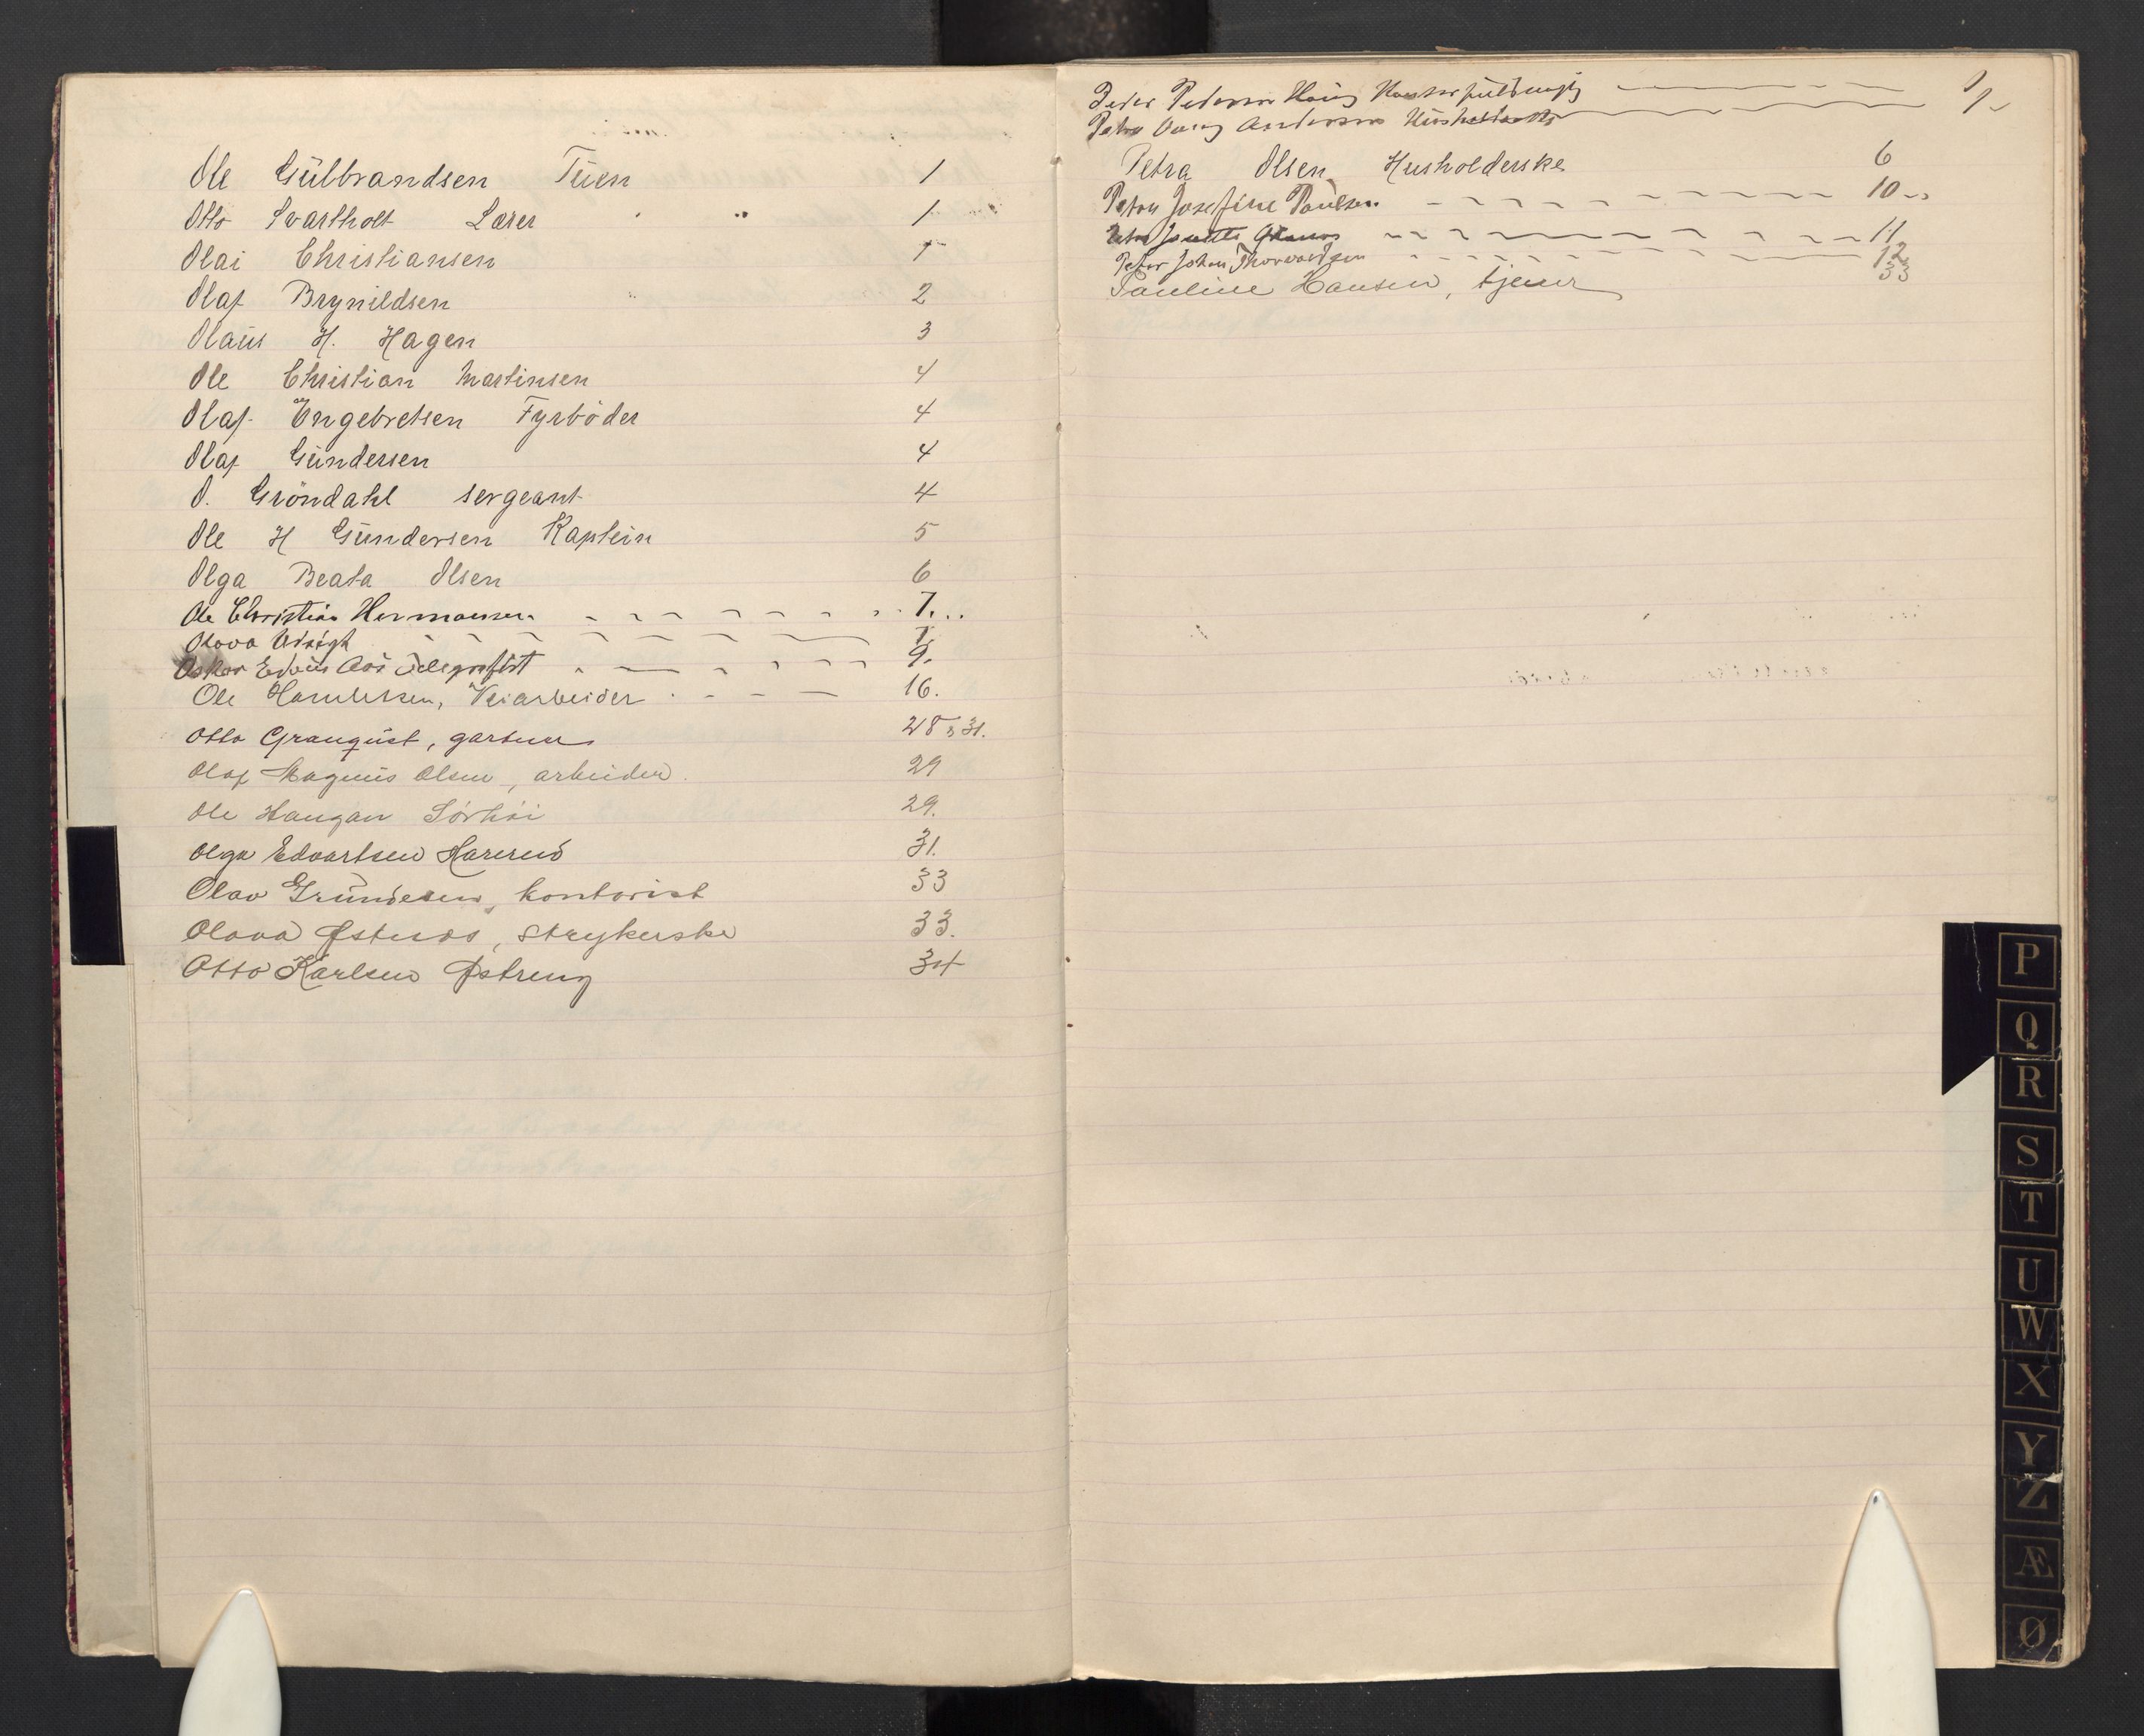 Ole Gülbrandsen Tüen 1
Otto Svartholt Lærer 1
Olai Christiansen 1
Olaf Brynildsen 2
Olaüs H. Hagen 3
Ole Christian Martinsen 4
Olaf Engebretsen Fyrböder 4
Olaf Gündersen 4
O. Gröndahl sergeant 4
Ole H Gündersen Kaptein 5
Olga Beata Olsen 6
Ole Christian Hermansen 7.
Olava 7
Oskar Edvin Aas Telegrafist 9.
Ole Veiarbeider 16.
Otto Granqüist, gartner 28 31.
Olaf Magnüs Olsen, arbeider 29
Ole Haugan Sörhöi 29.
Olga Edvartsen 31.
Olav kontorist 33
Olava strykerske 33.
Otto Karlsen Østreng 34
Peder Pedersen 1
Andersen 1
Petra Olsen Husholderske 6
Petra Josefine Paulsen 10
11
Peter Johan Thorvaldsen 12
Pauline Hansen, tjener 33
P
Q
R
S
T
U
W
X
Y
Z
Æ
Ø